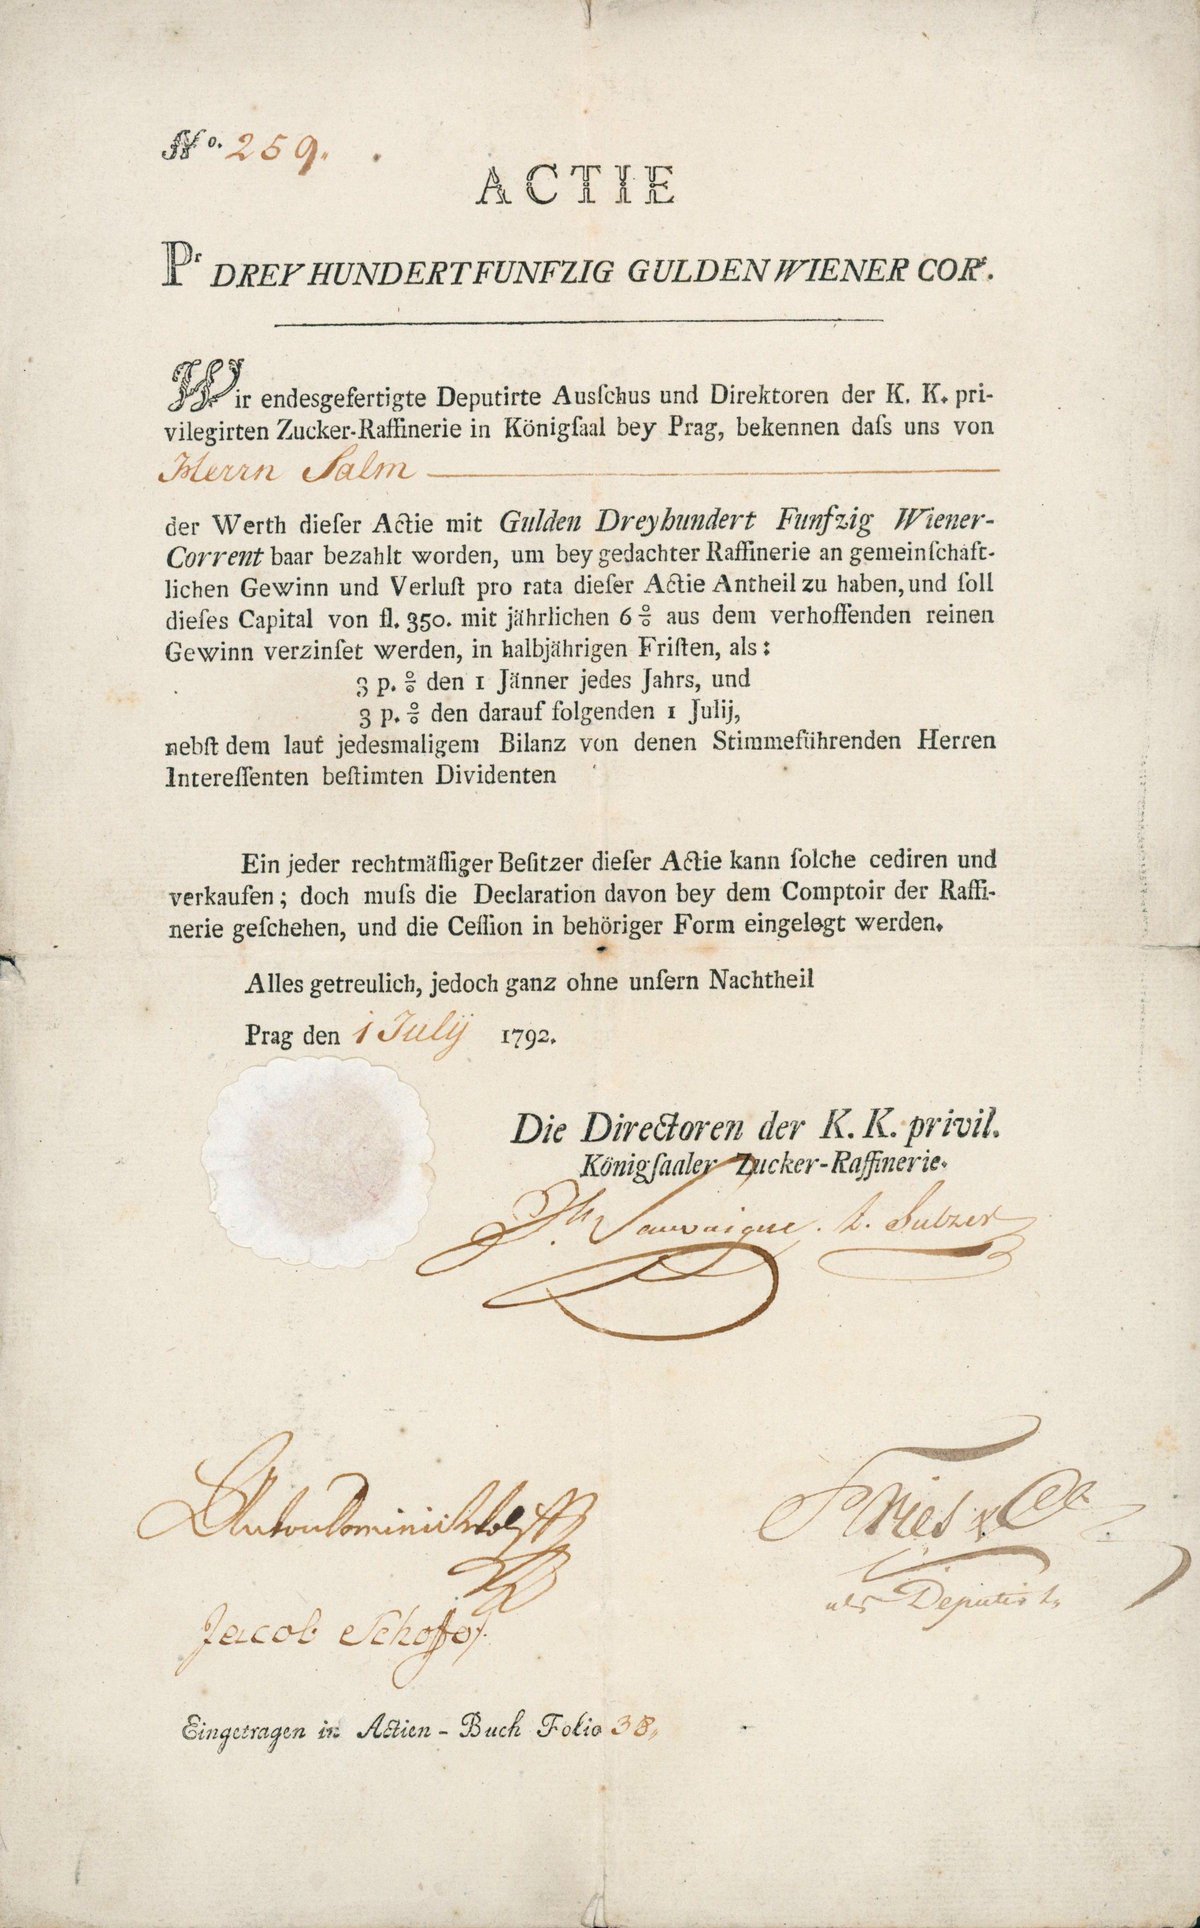 No. 259.
ACTIE
Pr DREY HUNDERTFUNFZIG GULDEN WIENER CORt.
Wir endesgefertigte Deputirte Ausſchus und Direktoren der K. K. pri-
vilegirten Zucker-Raffinerie in Königſaal bey Prag, bekennen daſs uns von
Herrn Salm
der Werth dieſer Actie mit Gulden Dreyhundert Funfzig Wiener-
Corrent baar bezahlt worden, um bey gedachter Raffinerie an gemeinſchaft-
lichen Gewinn und Verluſt pro rata dieſer Actie Antheil zu haben, und ſoll
dieſes Capital von fl. 350. mit jährlichen 6 % aus dem verhoffenden reinen
Gewinn verzinſet werden, in halbjährigen Friſten, als:
3 p. % den 1 Jänner jedes Jahrs, und
3 p. % den darauf folgenden 1 Julij,
nebſt dem laut jedesmaligem Bilanz von denen Stimmeführenden Herren
Intereſſenten beſtimten Dividenten
Ein jeder rechtmäſſiger Beſitzer dieſer Actie kann ſolche cediren und
verkaufen; doch muſs die Declaration davon bey dem Comptoir der Raffi-
nerie geſchehen, und die Ceſſion in behöriger Form eingelegt werden.
Alles getreulich, jedoch ganz ohne unſern Nachtheil
Prag den 1 July 1792.
Die Directoren der K. K. privil.
Königſaaler Zucker-Raffinerie.
Sauvaigue. Sulzer
Fries & Co
als Deputirte
Jacob Schoffer
Eingetragen in Actien - Buch Folio 38.